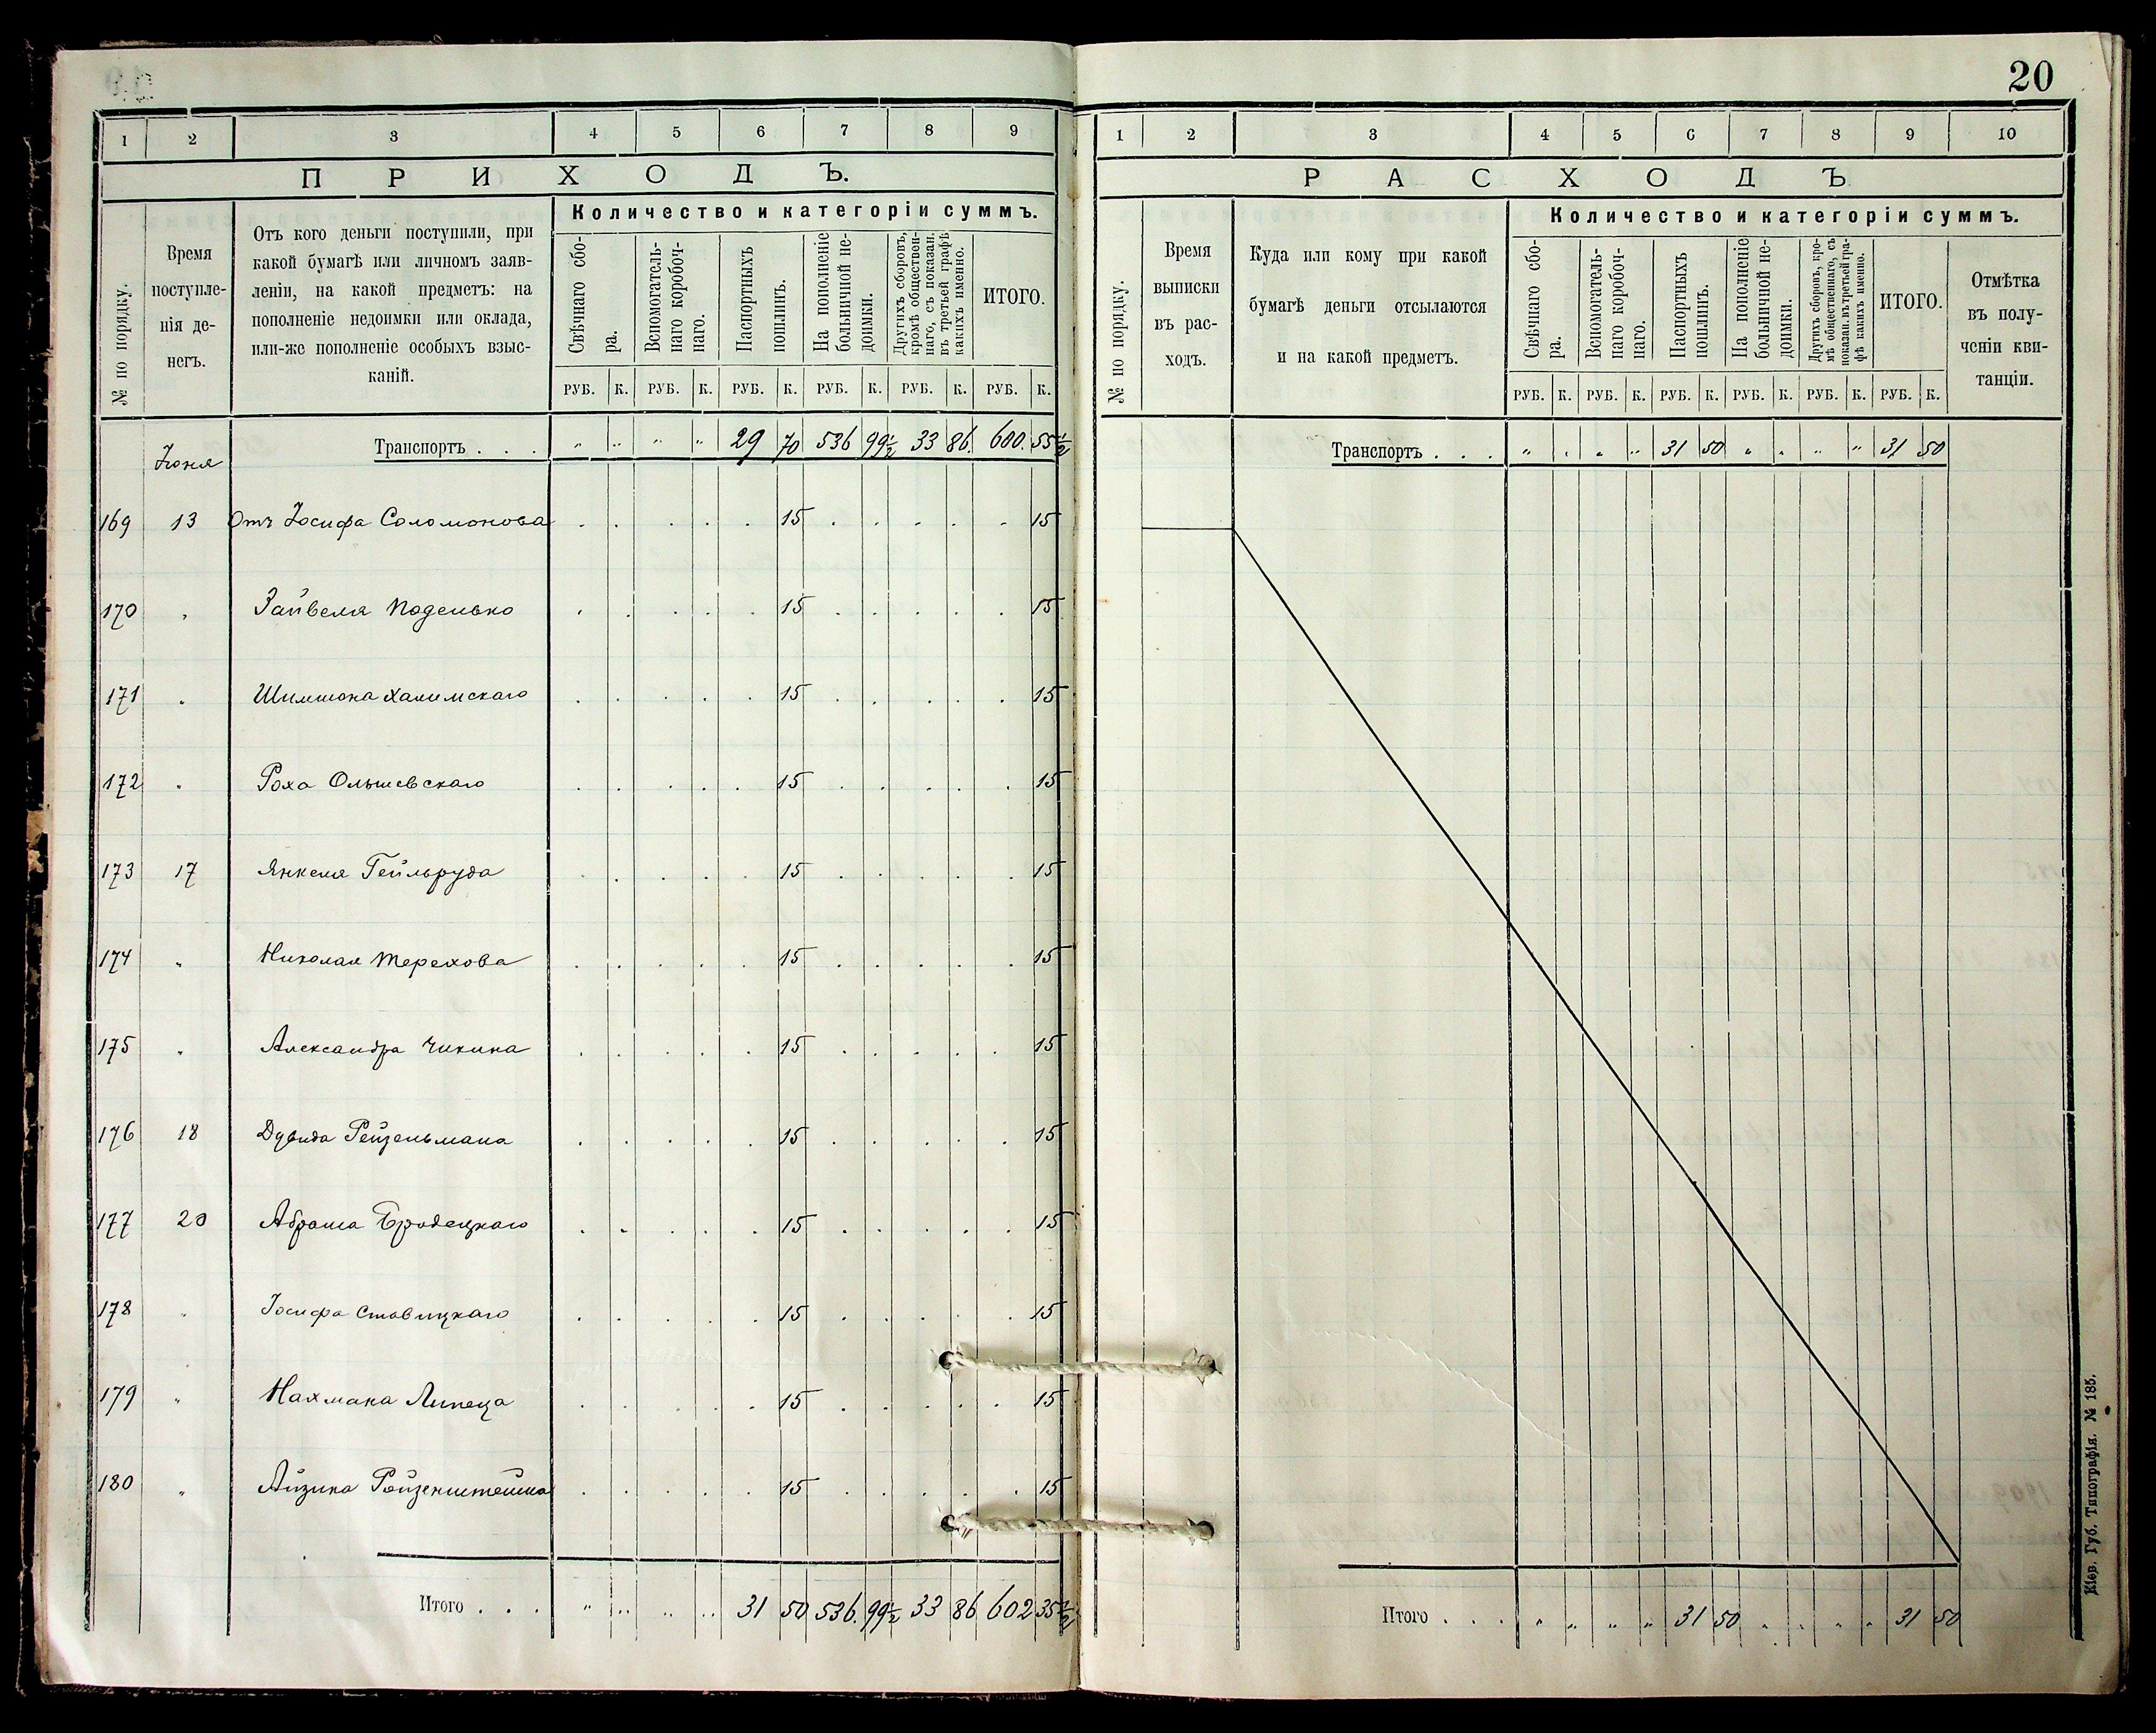 20
1 2 3 4 5 6 7 8 9
ПРИХОДЪ.
№ по порядку.
Время
поступле-
нія де-
негъ.
Отъ кого деньги поступили, при
какой бумагѣ или личномъ заяв-
леніи, на какой предметъ: на
пополненіе недоимки или оклада,
или-же пополненіе особыхъ взыс-
каній.
Количество и категоріи суммъ.
Свѣчнаго сбо-
ра.
Вспомогатель-
наго коробоч-
наго.
Паспортныхъ
пошлинъ.
На пополненіе
больничной не-
доимки.
Другихъ сборовъ,
кромѣ обществен-
наго, съ показан.
въ третьей графѣ
какихъ именно.
ИТОГО.
РУБ. К. РУБ. К. РУБ. К. РУБ. К. РУБ. К. РУБ. К.
Транспортъ . . . " " " " 29 70 536 99½ 33 86. 600. 55½
Іюня
169 13 Отъ Іосифа Соломонова . . . . . 15 . . . . . 15
170 " Зайвеля Поденько . . . . . 15 . . . . . 15
171 " Шимшона Халимскаго . . . . . 15 . . . . . 15
172 " Роха Ольшевскаго . . . . . 15 . . . . . 15
173 17 Янкеля Гейльруда . . . . . 15 . . . . . 15
174 " Николая Терехова . . . . . 15 . . . . . 15
175 " Александра Чикина . . . . . 15 . . . . . 15
176 18 Дувида Рейзельмана . . . . . 15 . . . . . 15
177 20 Абрама Бродецкаго . . . . . 15 . . . . . 15
178 " Іосифа Ставицкаго . . . . . 15 . . . . . 15
179 " Нахмана Липеца . . . . . 15 . . . . . 15
180 " Айзика Ройзенштейна . . . . . 15 . . . . . 15
Итого . . . " " " " 31 50 536. 99½ 33 86 602 35½
1 2 3 4 5 6 7 8 9 10
РАСХОДЪ
№ по порядку.
Время
выписки
въ рас-
ходъ.
Куда или кому при какой
бумагѣ деньги отсылаются
и на какой предметъ.
Количество и категоріи суммъ.
Свѣчнаго сбо-
ра.
Вспомогатель-
наго коробоч-
наго.
Паспортныхъ
пошлинъ.
На пополненіе
больничной не-
доимки.
Другихъ сборовъ, кро-
мѣ общественнаго, съ
показан. въ третьей гра-
фѣ какихъ именно.
ИТОГО.
Отмѣтка
въ полу-
ченіи кви-
танціи.
РУБ. К. РУБ. К. РУБ. К. РУБ. К. РУБ. К. РУБ. К.
Транспортъ . . . " " " " 31 50 " " " " 31 50
Итого . . . " " " " 31 50 " " " " 31 50
Кіев. Губ. Типографія. № 185.